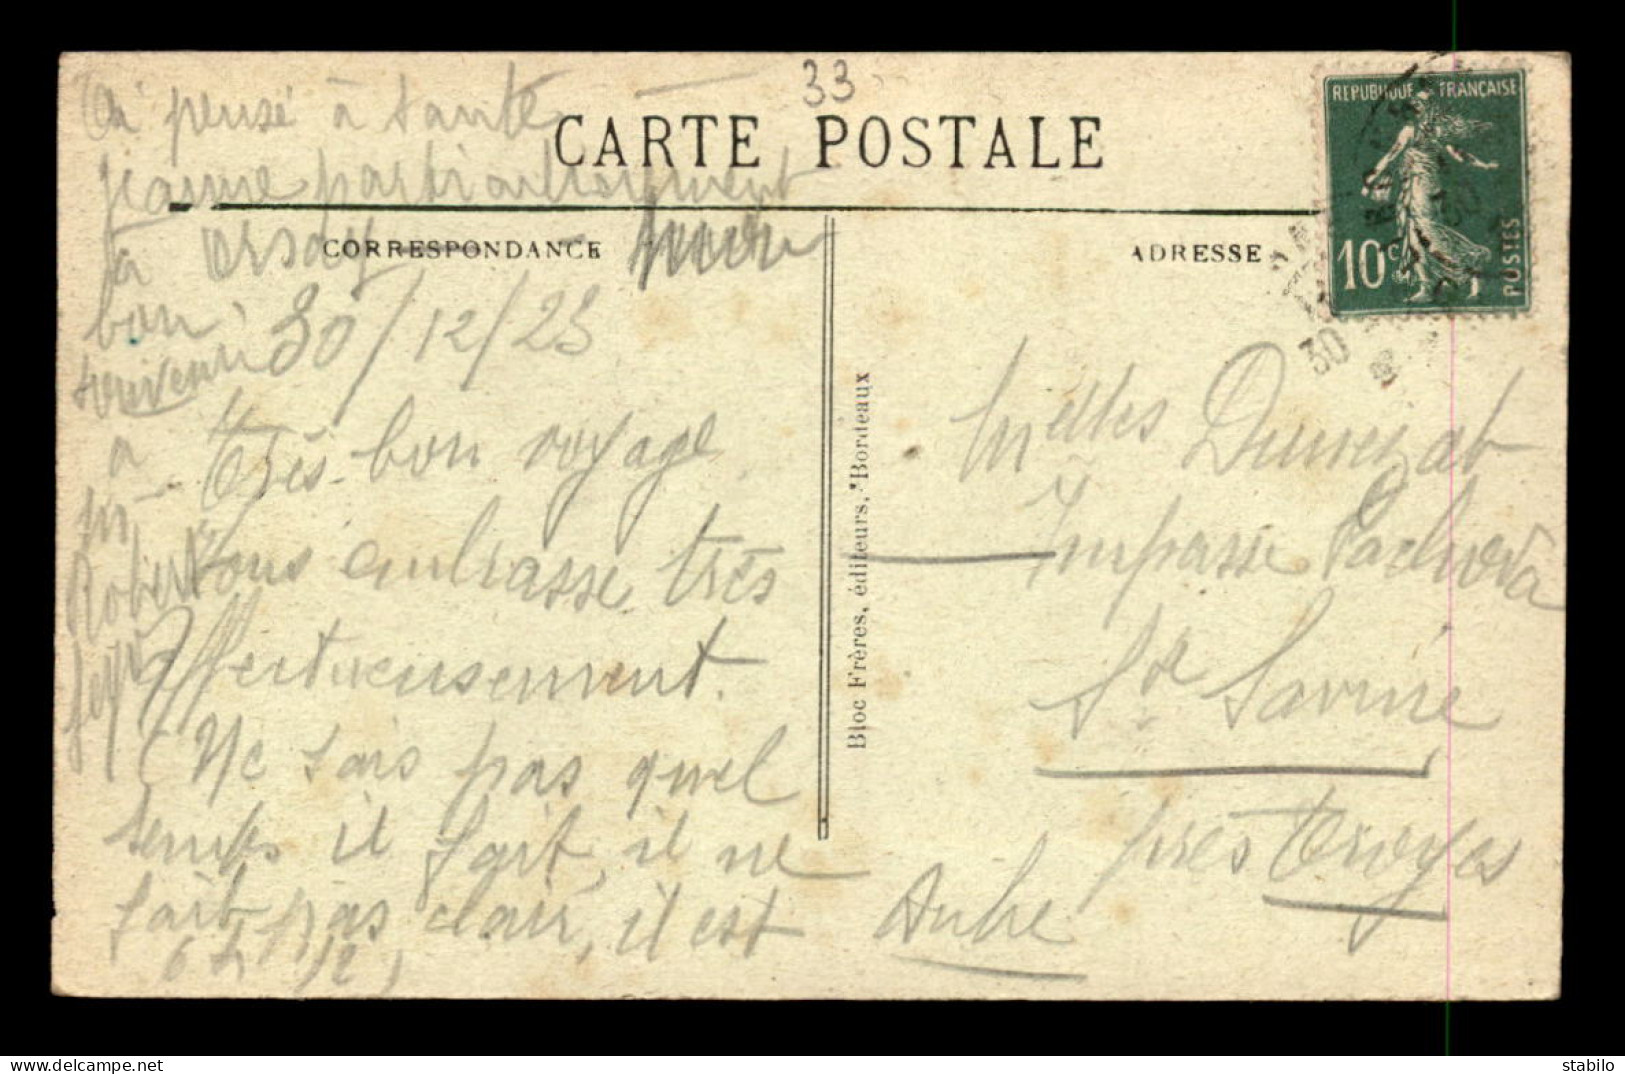 33
CARTE POSTALE
CORRESPONDANCE
ADRESSE
REPUBLIQUE FRANÇAISE
10c
POSTES
30
pensé à tante
jeanne particulièrement
à Orsay
bon
souvenir
à
Robert
30/12/23
Très bon voyage
Vous embrasse très
affectueusement.
(Ne sais pas quel
temps il fait, il ne
fait pas clair, il est
6h 1/2)
Bloc Frères, éditeurs, Bordeaux
Melles
Impasse
Ste Savine
près Troyes
Aube
stabilo